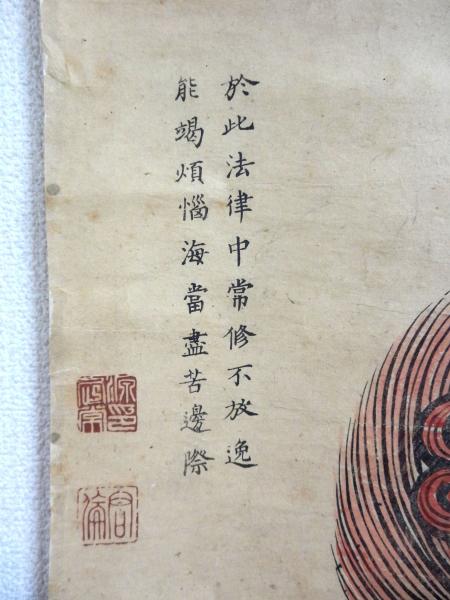 於此法律中常修不放逸
能竭煩惱海當盡苦邊際